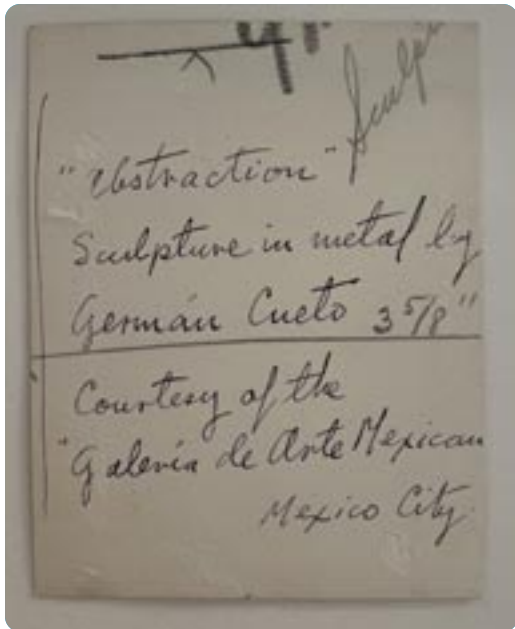 "Abstraction"
Sculpture in metal by
Germán Cueto 3 5/8"
Courtesy of the
"Galería de Arte Mexican
Mexico City.